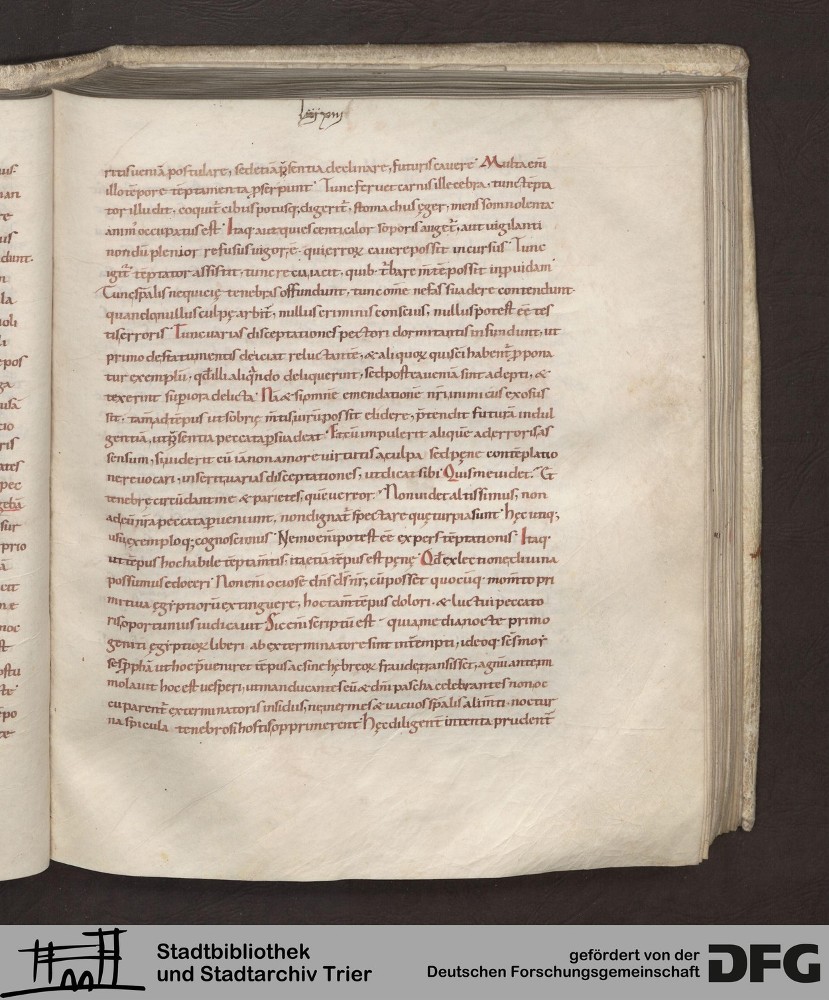 lxxxiii
ritis ueniā postulare, sed etiā p̄sentia declinare, futuris cauere. Multa eni
illo tēpore tēptamenta p̄serpunt. Tunc feruet carnis illecebra, tunc tēpta
tor illudit, coquit̄ cibus potusq; digerit̄, stomachus ęger, mens somnolenta
anim' occupatus est. Itaq; aut quiescenti calor soporis anget̄, aut uigilanti
nondū plenior refusus uigor, ē qui erroꝝ cauere possit incursus. Tunc
igit̄ tēptator assistit, tunc retia iacit, quib; t̄bare m̄te possit inp̄uidam
Tunc sp̄alis nequicię tenebras offundunt, tunc om̄e nefas suadere contendunt
quando nullus culpę arbit̄, nullus criminis conscius, nullus potest ēe tes
tis erroris. Tunc uarias disceptationes pectori dormitantis infundunt, ut
primo de statu mentis deiciat reluctantē, & aliquoꝝ qui sc̄i habent̄ p̄pona
tur exemplū, qđ illi aliqn̄do deliquerint, sed postea ueniā sint adepti, &
texerint supiora delicta. Nā & si omne emendationē nr̄i inimicus exosus
sit, tam ad tēpus ut sobrię m̄tis uirū possit elidere, p̄tendit futurā indul
gentiā, ut p̄sentia peccata p̄suadeat. Et cū impulerit aliquē ad erroris as
sensum, si uiderit eū iā non amore uirtutis a culpa sed pęnę contēplatio
ne reuocari, inserit uarias disceptationes, ut dicat sibi. Quis me uidet. Et
tenebrę circūdant me & parietes, quē uereor. Non uidet altissimus, non
ad eū nr̄a peccata p̄ueniunt, non dignat̄ spectare quę turpia sunt. Hęc utiq;
usu, exemploq; cognoscimus. Nemo eni potest ēe expers tēptationis. Itaq;
ut tēpus hoc habile tēptam̄tis, ita etiā tēpus est pęnę. Qđ ex lectione diuina
possumus edoceri. Non eni ociose dn̄s ds̄ nr̄, cū posset quocūq; mom̄to pri
mitiua ęgiptiorū extinguere, hoc tam̄ tēpus dolori & luctui peccato
ris oportunius iudicauit. Sic eni scriptū est, quia media nocte primo
geniti ęgiptioꝝ liberi ab exterminatore sint int̄empti, ideoq; sc̄s moy
ses pphā ut hoc p̄ueniret tēpus ac sine hębreoꝝ fraude transisset, agnū ante im
molauit hoc est uesperi, ut manducantes eū & dn̄i pascha celebrantes non oc
cuparent̄ exterminatoris insidiis, ne inermes & uacuos sp̄alis alim̄ti, noctur
na spicula tenebrosi hostis opprimerent. Hęc diligent̄ intenta prudent̄
Stadtbibliothek
und Stadtarchiv Trier
gefördert von der
Deutschen Forschungsgemeinschaft
DFG